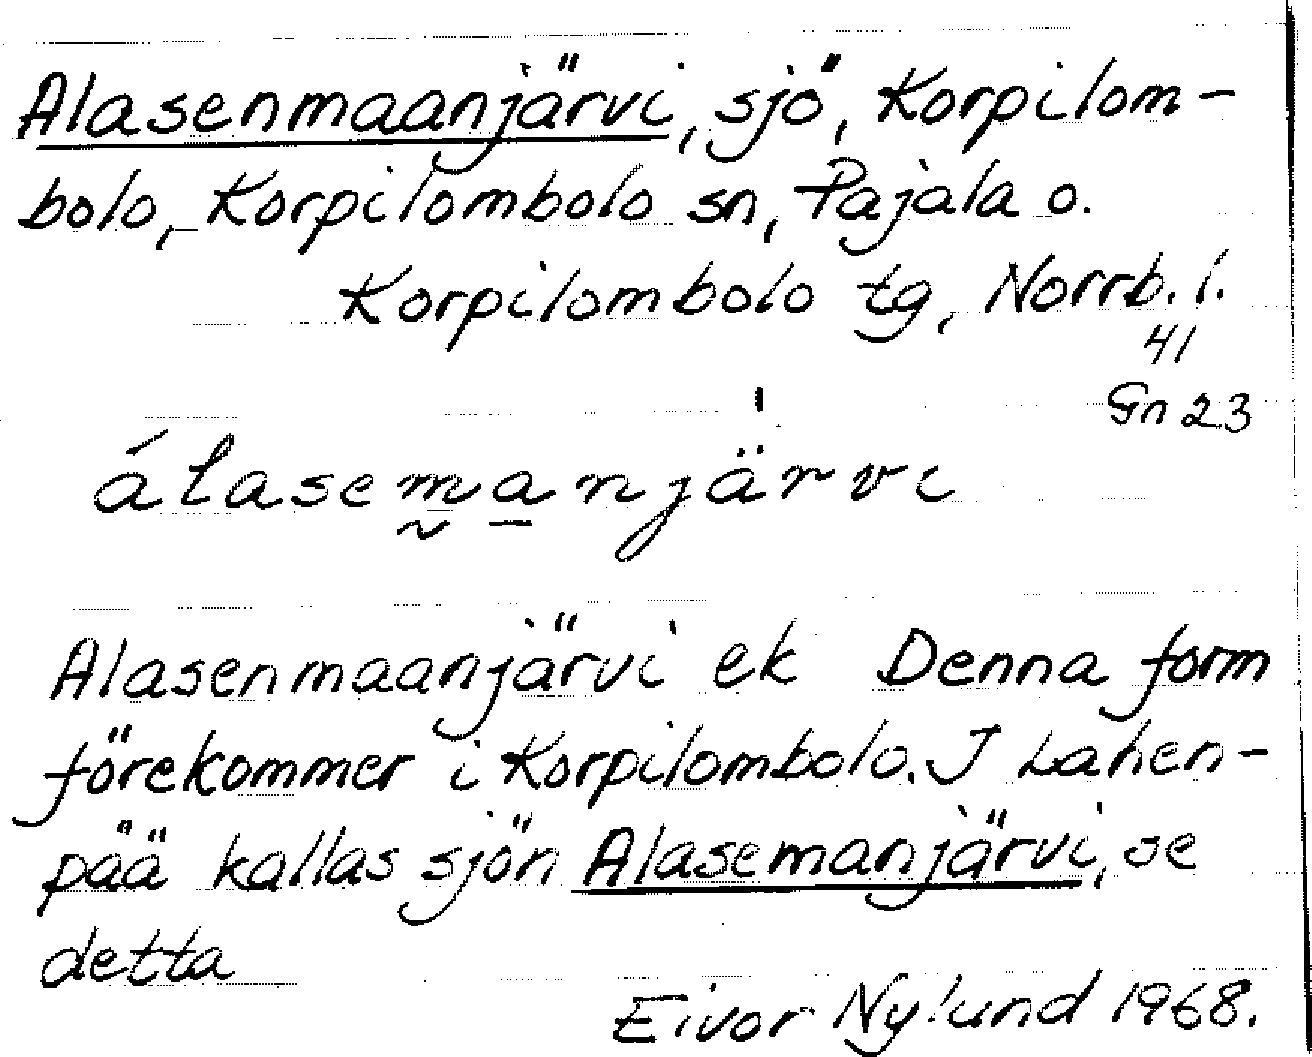 Alasenmaanjärvi, sjö, Korpilom-
bolo, Korpilombolo sn, Pajala o.
Korpilombolo tg, Norrb. l.
41
Gn 23
álasem̰a̱njärvi
Alasenmaanjärvi ek Denna form
förekommer i Korpilombolo. I Lahen-
pää kallas sjön Alasemanjärvi, se
detta
Eivor Nylund 1968.